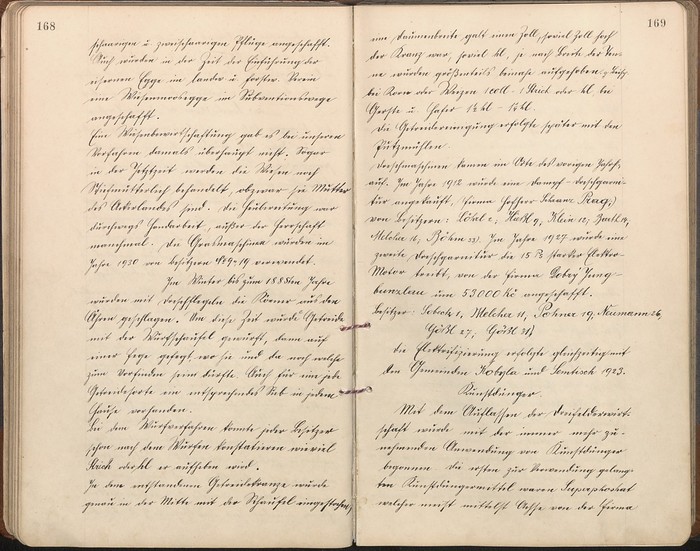 168
scharigen u zweischarigen Pflüge angeschafft.
Auch wurden in der Zeit der Einführung der
eisernen Egge im landw. u forstw. Verein
eine Wiesenmoosegge im Subventionswege
angeschafft.
Ein Wiesenbewirtschaftung gab es bei unseren
Vorfahren damals überhaupt nicht. Sogar
in der Jetztzeit werden die Wiesen noch
Stiefmütterlich behandelt, obzwar sie Mütter
des Ackerlandes sind. Die Heubereitung war
durchwegs Handarbeit, außer der Herrschaft
manchmal. Die Grasmaschine wurden im
Jahre 1930 von Besitzern verwendet.
Im Winter bis zum 1888sten Jahre
wurden mit Dreschflegeln die Körner aus den
Ähren geschlagen. Um diese Zeit wurde Getreide
mit der Wurfschaufel geworfen, dann auf
einer Fege gefegt, wo sie und da noch welche
zum Vorfinden sein dürfte. Auch für eine jede
Getreidesorte ein entsprechendes Sieb in jedem
Hause vorhanden.
Bei dem Wurfverfahren konnte jeder Besitzer
schon nach dem Wurfen konstatieren wieviel
Strich oder hl er aufheben wird.
In dem entstandenen Getreidekranze wurde
genau in der Mitte mit der Schaufel eingestochen,
169
eine Daumenbreite galt einen Zoll, soviel Zoll hoch
der Kranz war, soviel hl, je nach Breite der Ten-
ne wurden größtenteils beinahe aufgehoben.
bei Korn oder Weizen 1 Zoll - 1 Strich oder hl bei
Gerste u Hafer
Die Getreidereinigung erfolgte später mit den
Putzmühlen.
Dreschmaschinen kamen im Ende des vorigen Jahrh.
auf. Im Jahre 1912 wurde eine Dampf-Dreschgarni-
tur angekauft, Firma Hofherr Schrantz Prag,
von Besitzern: Löbel 2, Hüttl 9, Klein 12,
Melcher 16, Böhm 23). Im Jahre 1927 wurde eine
zweite Dreschgarnitur die 15 Ps starker Elektro-
Motor treibt, von der Firma Dobrý Jung-
bunzlau um 53000 Kč angeschafft.
Besitzer: 1, Melcher 11, 19, Neumann 26,
Gößl 27, Gößl 21)
Die Elektrifizierung erfolgte gleichzeitig mit
den Gemeinden Kobyla und Semtisch 1923.
Kunstdünger.
Mit dem Auflassen der Dreifelderwirt-
schaft wurde mit der immer mehr zu-
nehmenden Anwendung von Kunstdünger
begonnen. Die ersten zur Anwendung gelang-
ten Kunstdüngermittel waren Superphosphat
welcher meist mittelst Achse von der Firma